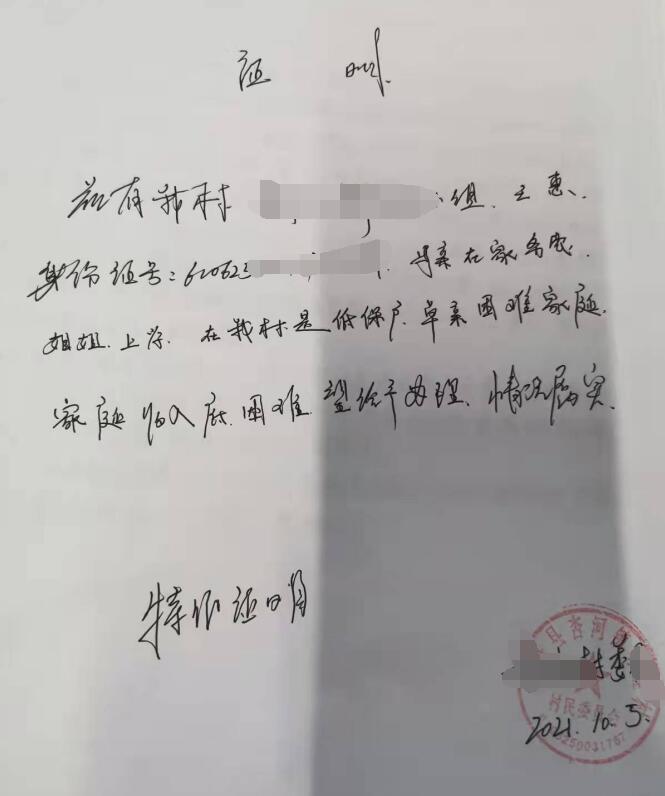 证 明
兹有我村 组、王惠、
身份证号:610623 母亲在家务农.
姐姐、上学、在我村是低保户、单亲困难家庭.
家庭收入底、困难、望给予办理、情况属实.
特此证明
县杳河 村委
村民委员会
2021.10.5.